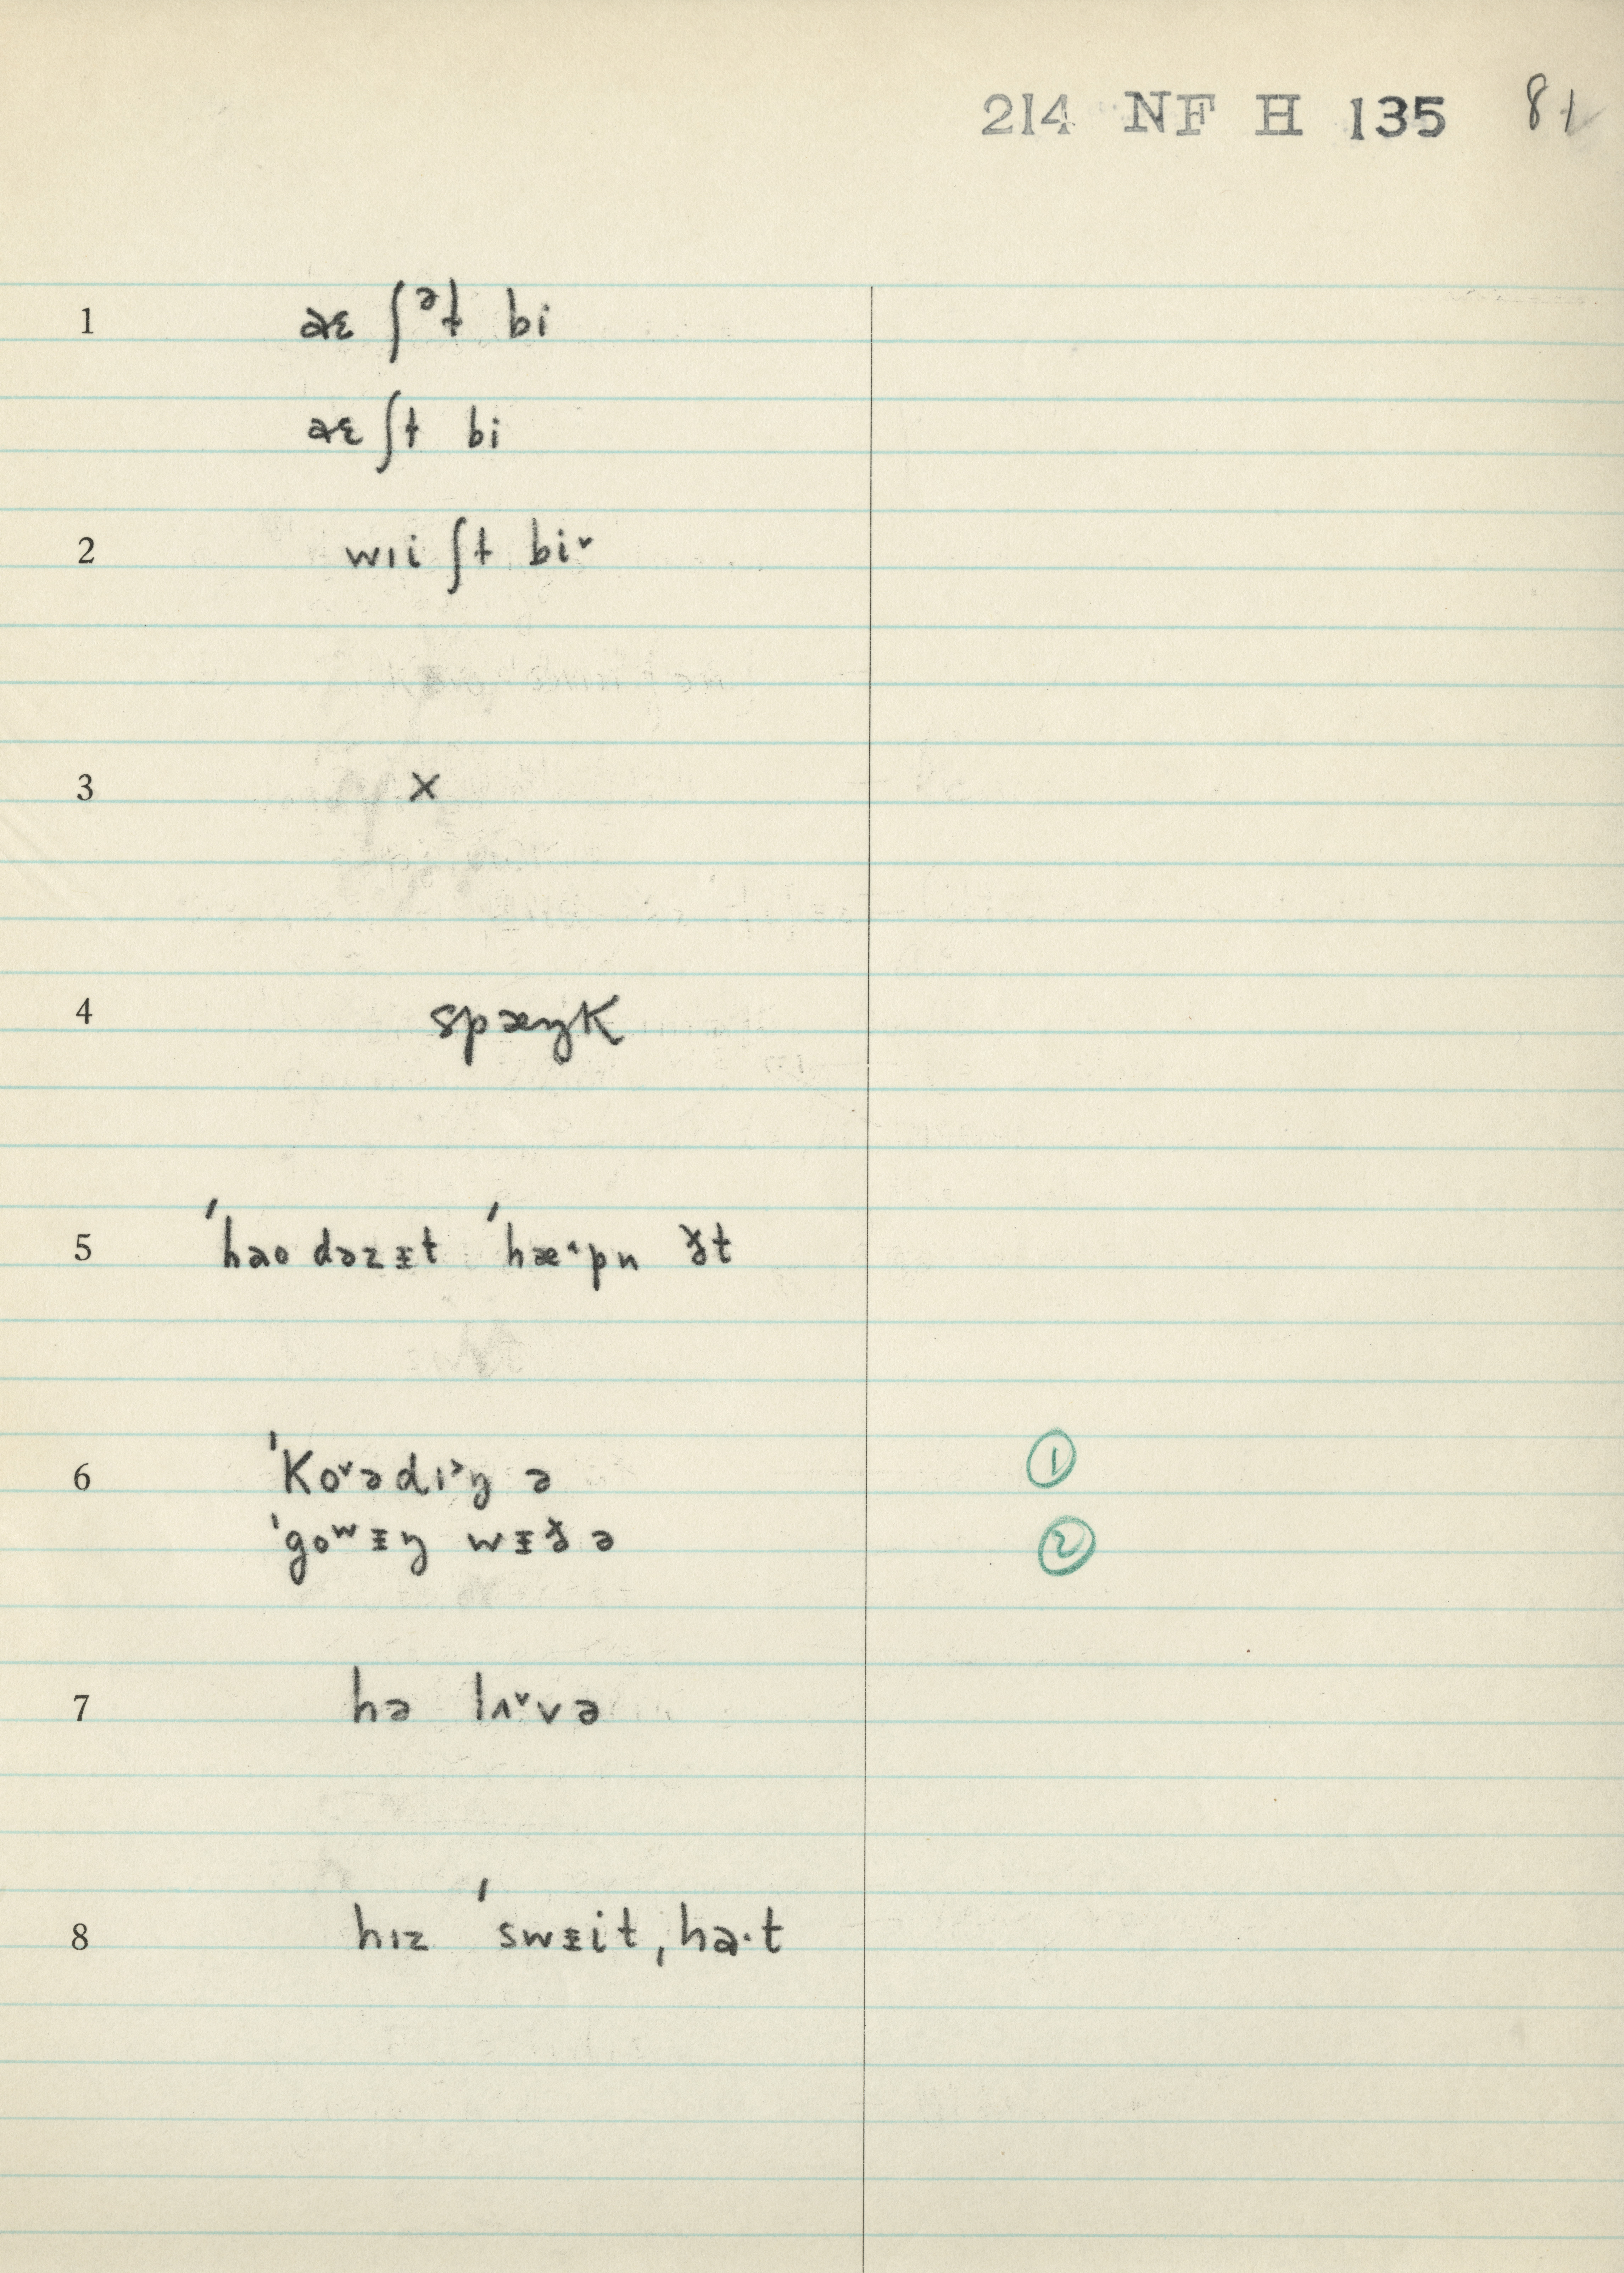 214 NF H 135 81
1 aɛ ʃᵊɫ bi
aɛ ʃɫ bi
2 wɪi ʃɫ bi˅
3 x
4 spæŋk
5 ˈhao dəzᵻt ˈhæ˄pn ɚt
6 ˈko˅ədɪ˃ŋ ə ①
ˈgoʷᵻŋ wᵻð ə ②
7 hə lʌ˅və
8 hɪz ˈswᵻit,ha·t